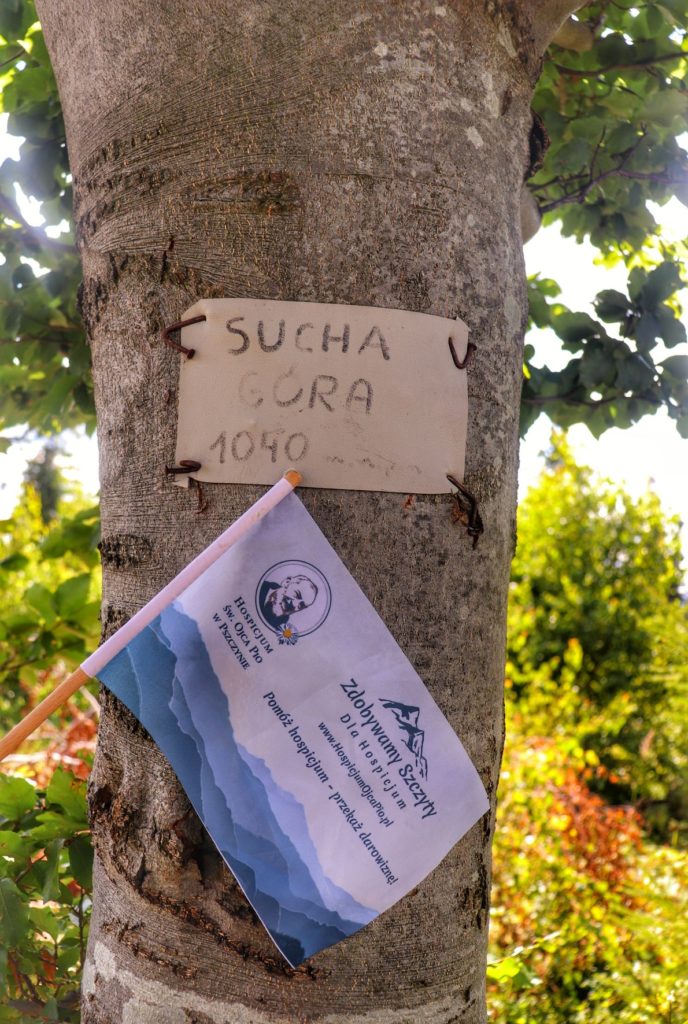 SUCHA
GÓRA
1040
HOSPICJUM
ŚW. OJCA PIO
W PSZCZYNIE
Zdobywamy Szczyty
Dla Hospicjum
www.HospicjumOjcaPio.pl
Pomóż hospicjum - przekaż darowiznę!